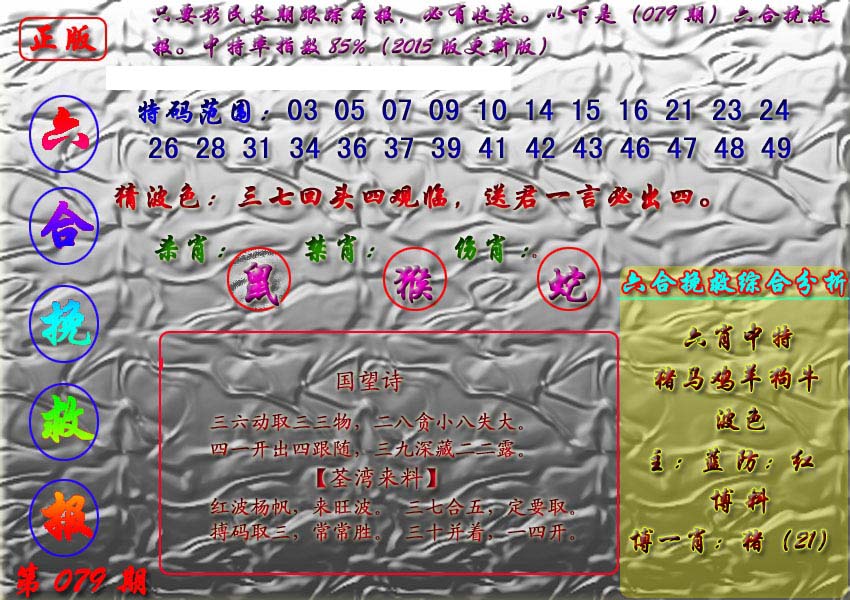 正版
只要彩民长期跟踪本报，必有收获。以下是（079期）六合挽救
报。中特率指数85%（2015版更新版）
六合挽救报
第079期
特码范围：03 05 07 09 10 14 15 16 21 23 24
26 28 31 34 36 37 39 41 42 43 46 47 48 49
猜波色：三七回头四观临，送君一言必出四。
杀肖：鼠 禁肖：猴 伤肖：蛇
国望诗
三六动取三三物，二八贪小八失大。
四一开出四跟随，三九深藏二二露。
【荃湾来料】
红波杨帆，来旺波。 三七合五，定要取。
搏码取三，常常胜。 三十并着，一四开。
六合挽救综合分析
六肖中特
猪马鸡羊狗牛
波色
主：蓝防：红
博料
博一肖：猪（21）